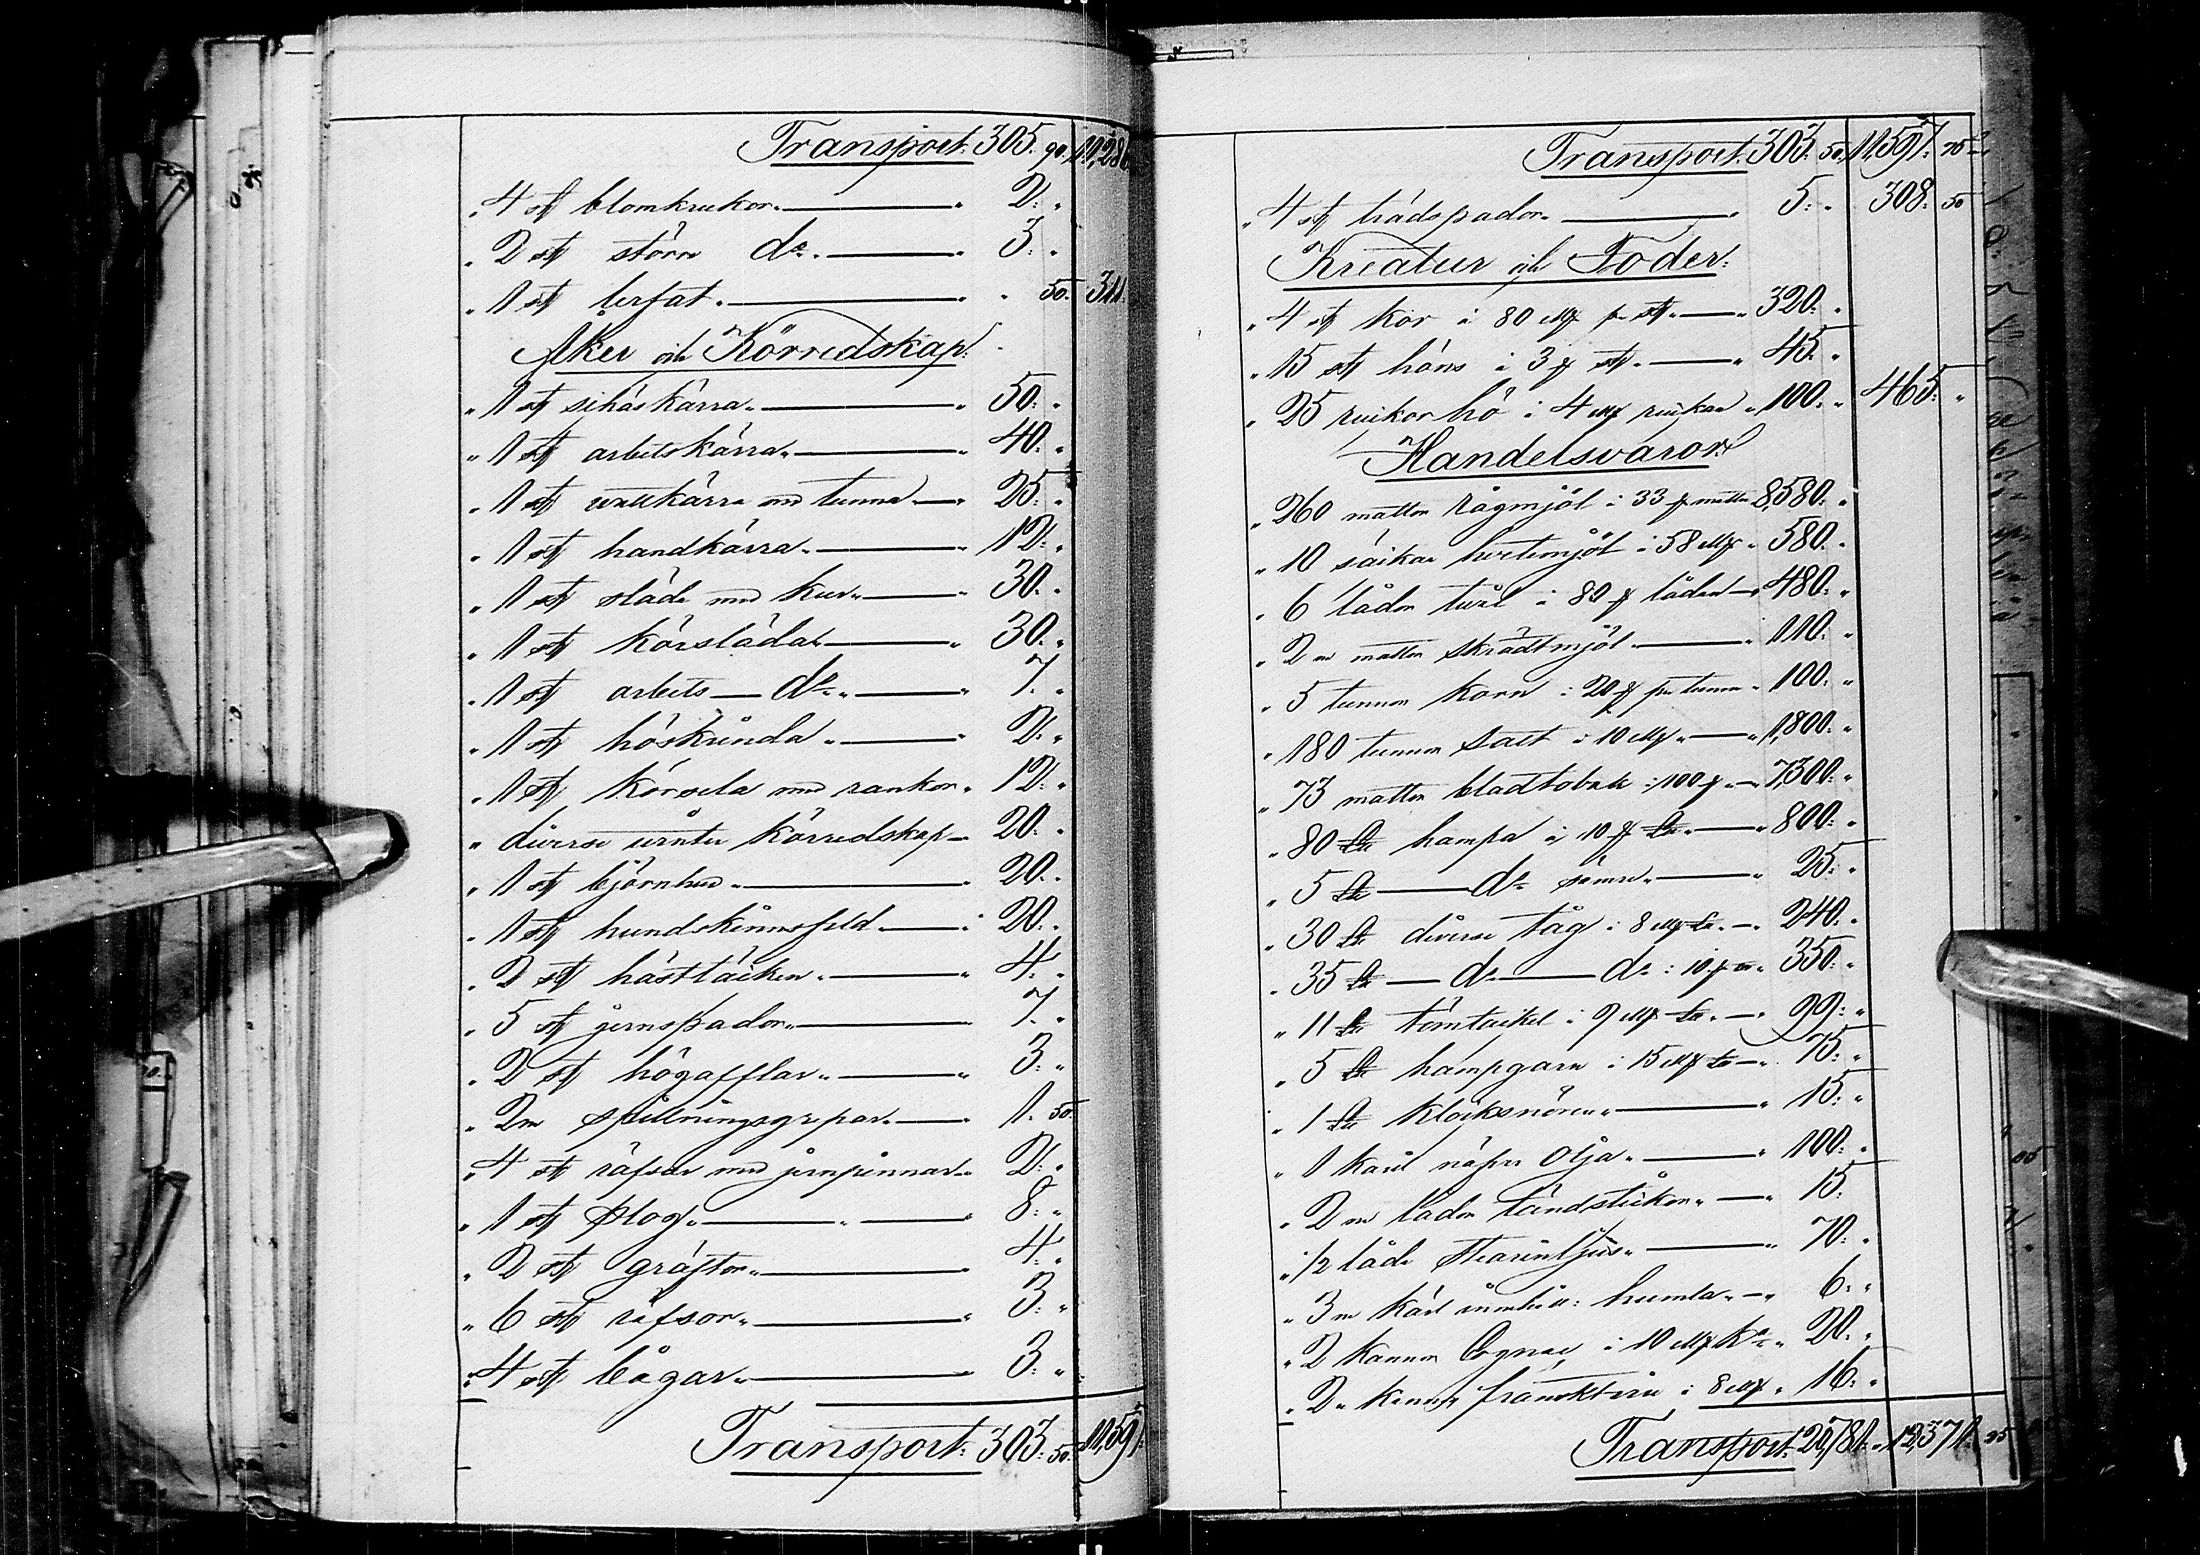 Transport. 305. 90. 11,286
„ 4 st blomkrukor „ 2: „
„ 2 st större do „ 3: „
„ 1 st lerfat „ „ 50. 311.
Åker och Körredskap.
„ 1 st schäskärra „ 50: „
„ 1 st arbetskärra „ 40: „
„ 1 st wattkärra med tunna „ 25: „
„ 1 st handkärra „ 12: „
„ 1 st släde med kur „ 30: „
„ 1 st körsläda „ 30: „
„ 1 st arbets do „ 7. „
„ 1 st höskrinda „ 2: „
„ 1 st körsela med rankor „ 12: „
„ diverse winter körredskap „ 20: „
„ 1 st björnhud „ 20: „
„ 1 st hundskinnsfäld „ 20: „
„ 2 st hästtäcken „ 4: „
„ 5 st jernspador „ 7. „
„ 2 st högafflar „ 3: „
„ 2 m spillningsgrepar „ 1. 50.
„ 4 st räfsor med jernpinnar „ 2: „
„ 1 st plog „ 8: „
„ 2 st gräftor „ 4: „
„ 6 st räfsor „ 3: „
„ 4 st bågar „ 3: „
Transport: 303: 50. 11,597.
Transport. 303: 50. 11,597: 75
„ 4 st trädspador „ 5: „ 308: 50
Kreatur och Foder:
„ 4 st kor à 80 mk pr st „ 320: „
„ 15 st höns à 3 st „ 45: „
„ 25 ruikor hö à 4 mk ruikan „ 100: „ 465: „
Handelsvaror
„ 260 mattor rågmjöl à 33 mattan 8,580: „
„ 10 säckar hvetemjöl à 58 mk „ 580: „
„ 6 lådor twål à 80 lådan „ 480: „
„ 2 m mattor skrädtmjöl „ 110: „
„ 5 tunnor korn à 20 pr tunna „ 100: „
„ 180 tunnor Salt à 10 mk „ 1,800: „
„ 73 mattor bladtobak à 100 „ 7,300: „
„ 80 ℔ hampa à 10 ℔ „ 800: „
„ 5 ℔ do „ 25: „
„ 30 ℔ diverse tåg à 8 mk ℔ „ 240: „
„ 35 ℔ do do à 10 „ 350: „
„ 11 ℔ à 9 mk ℔ „ 99: „
„ 5 ℔ hampgarn à 15 mk ℔ „ 75: „
„ 1 ℔ „ 15: „
„ 1 käril olja „ 100: „
„ 2 m lådor tändstickor „ 15:
„ 1/2 låda Stearinljus „ 70: „
„ 3 m käril innehåll: humla „ 6: „
„ 2 kannor Cognac à 10 mk ka „ 20: „
„ 2 kannor à 8 mk „ 16: „
Transport. 20,781: „ 12,371. 25